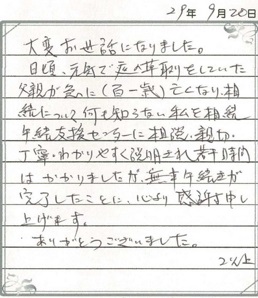 29年 9月20日
大変お世話になりました。
日頃、元気で庭の草取りをしていた
父親が急に(百一歳)亡くなり、相
続について何も知らない私を相続
手続支援センターに相談、親切、
丁寧、わかりやすく説明され若干時間
はかかりましたが、無事手続きが
完了したことに、心より感謝申し
上げます。
ありがとうございました。
以上